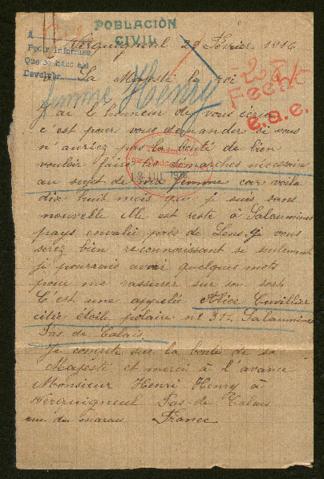 POBLACIÓN
CIVIL
Février 1916
A
Pour informer
Sa Majesté le roi
femme Henry
J'ai le honneur de vous écrire
c'est pour vous demander si vous
n'auriez pas la bonté de bien
vouloir faire les démarches nécessaires
au sujet de ma femme car voila
dix huit mois que je suis sans
nouvelle elle est resté à Salaumines
pays envahie près de Lens. Je vous
serez bien reconnaissant si seulement
je pourrais avoir quelques mots
pour me rassurer sur son sort
C'est une appelée Alice Cuvillier
citée étoile polaire n° 317 Salaumines
Pas de Calais
Je compte sur la bonté de sa
Majesté et merci à l'avance
Monsieur Henri Henry à
Verquigneul Pas-de-Calais
rue du marais France